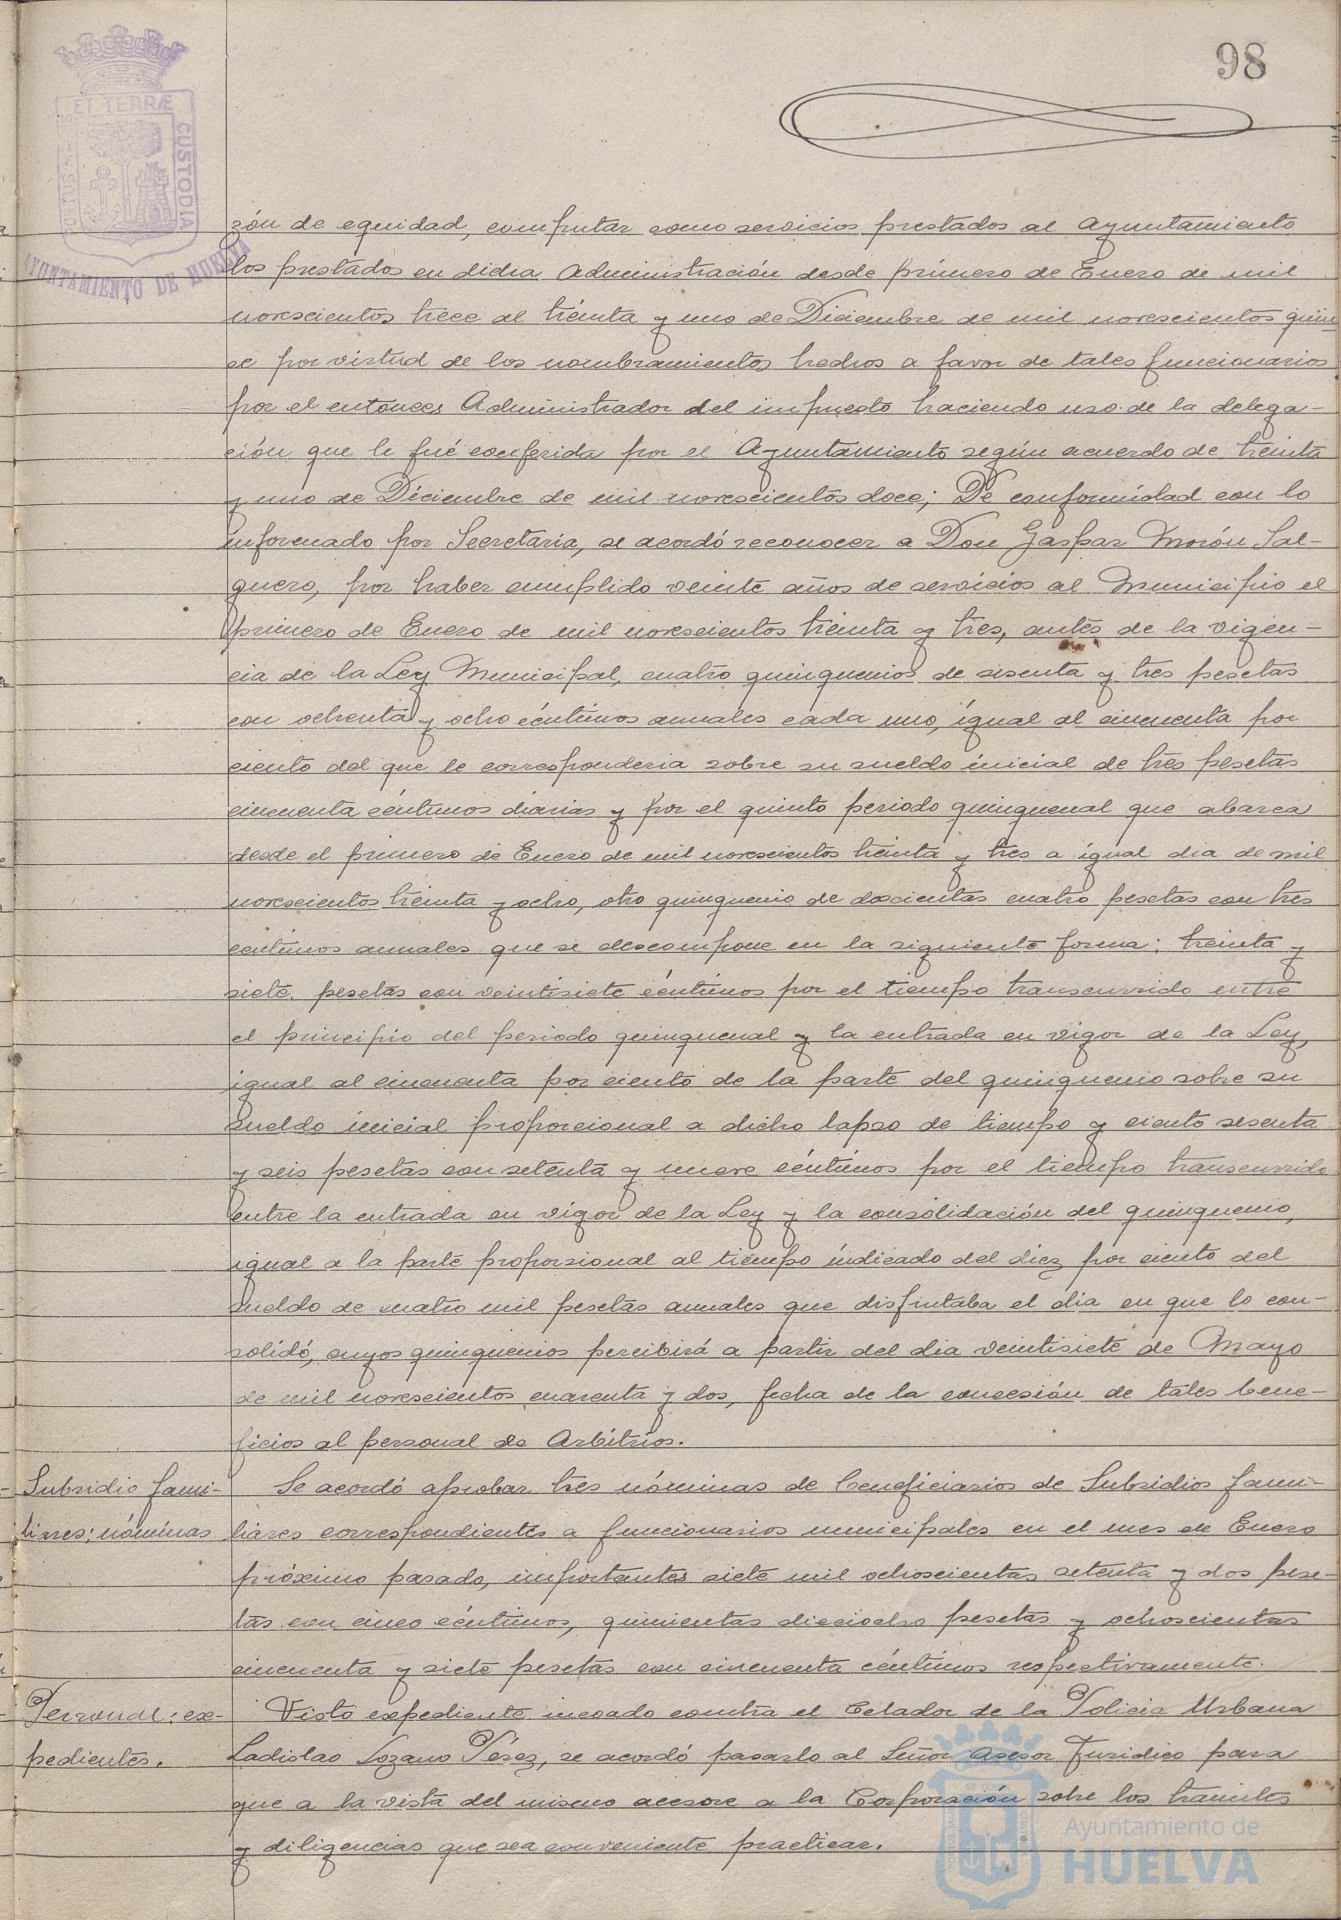 98
ET TERRÆ
CUSTODIA
AYUNTAMIENTO DE HUELVA
zón de equidad, computar como servicios prestados al Ayuntamiento
los prestados en dicha Administración desde primero de Enero de mil
novescientos trece al treinta y uno de Diciembre de mil novescientos quin
ce por virtud de los nombramientos hechos a favor de tales funcionarios
por el entonces Administrador del impuesto haciendo uso de la delega-
ción que le fué conferida por el Ayuntamiento según acuerdo de treinta
y uno de Diciembre de mil novescientos doce; De conformidad con lo
informado por Secretaria, se acordó reconocer a Don Gaspar Morón Sal-
guero, por haber cumplido veinte años de servicios al Municipio el
primero de Enero de mil novescientos treinta y tres, antes de la vigen-
cia de la Ley Municipal, cuatro quinquenios de sesenta y tres pesetas
con ochenta y ocho céntimos anuales cada uno, igual al cincuenta por
ciento del que le corresponderia sobre su sueldo inicial de tres pesetas
cincuenta céntimos diarias y por el quinto periodo quinquenal que abarca
desde el primero de Enero de mil novescientos treinta y tres a igual dia de mil
novescientos treinta y ocho, otro quinquenio de doscientas cuatro pesetas con tres
centimos anuales que se descompone en la siguiente forma: treinta y
siete pesetas con veintisiete céntimos por el tiempo transcurrido entre
el principio del periodo quinquenal y la entrada en vigor de la Ley,
igual al cincuenta por ciento de la parte del quinquenio sobre su
sueldo inicial proporcional a dicho lapso de tiempo y ciento sesenta
y seis pesetas con setenta y nueve céntimos por el tiempo transcurrido
entre la entrada en vigor de la Ley y la consolidación del quinquenio,
igual a la parte proporsional al tiempo indicado del diez por ciento del
sueldo de cuatro mil pesetas anuales que disfrutaba el dia en que lo con-
solidó, cuyos quinquenios percibirá a partir del dia veintisiete de Mayo
de mil novescientos cuarenta y dos, fecha de la concesión de tales bene-
ficios al personal de Arbitrios.
Subsidio fami-
liares; nóminas
Se acordó aprobar tres nóminas de beneficiarios de Subsidios fami-
liares correspondientes a funcionarios municipales en el mes de Enero
próximo pasado, importantes siete mil ochoscientas setenta y dos pese-
tas con cinco céntimos, quinientas dieciocho pesetas y ochoscientas
cincuenta y siete pesetas con cincuenta céntimos respectivamente.
Personal: ex-
pedientes.
Visto expediente incoado contra el Celador de la Policia Urbana
Ladislao Lozano Pérez, se acordó pasarlo al Señor Asesor Juridico para
que a la vista del mismo acesore a la Corporación sobre los tramites
y diligencias que sea conveniente practicar.
Ayuntamiento de
HUELVA